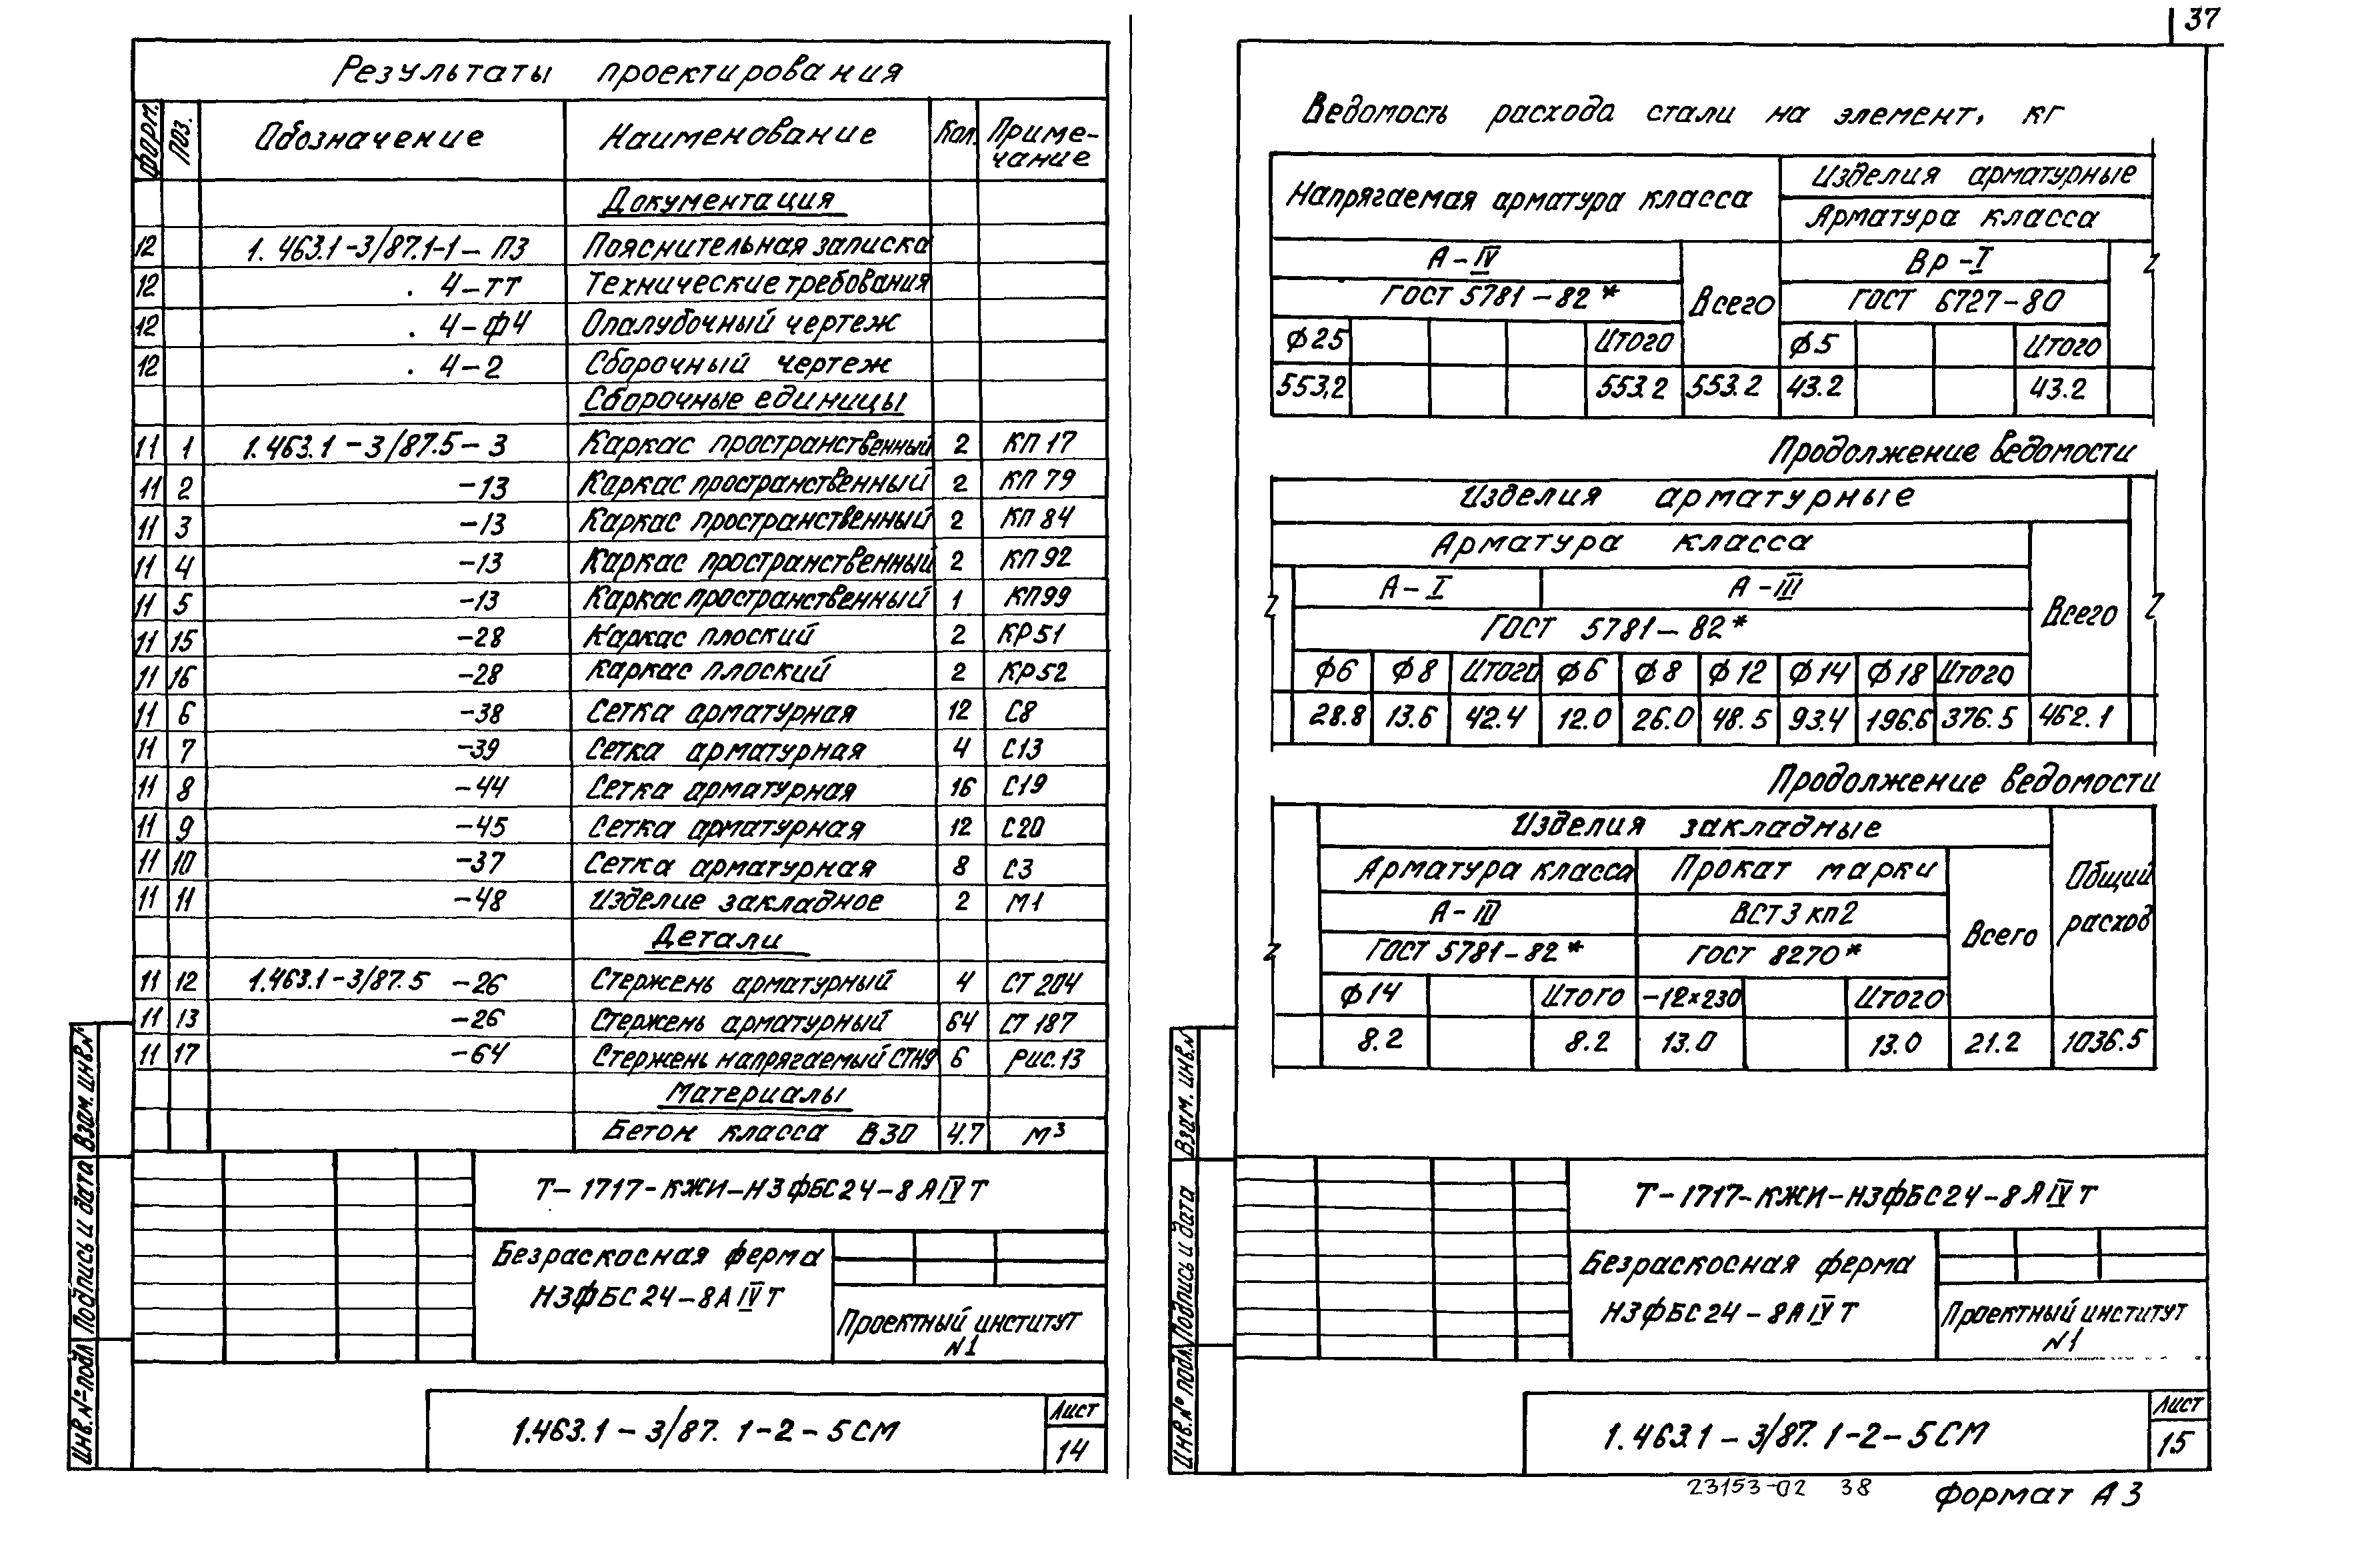 37
Результаты проектирования
Форм. Поз. Обозначение Наименование Кол. Приме-
чание
Документация
12 1.463.1-3/87.1-1-ПЗ Пояснительная записка
12 . 4-ТТ Технические требования
12 . 4-Ф4 Опалубочный чертеж
12 . 4-2 Сборочный чертеж
Сборочные единицы
11 1 1.463.1-3/87.5-3 Каркас пространственный 2 КП 17
11 2 -13 Каркас пространственный 2 КП 79
11 3 -13 Каркас пространственный 2 КП 84
11 4 -13 Каркас пространственный 2 КП 92
11 5 -13 Каркас пространственный 1 КП99
11 15 -28 Каркас плоский 2 КР51
11 16 -28 Каркас плоский 2 КР52
11 6 -38 Сетка арматурная 12 С8
11 7 -39 Сетка арматурная 4 С13
11 8 -44 Сетка арматурная 16 С19
11 9 -45 Сетка арматурная 12 С20
11 10 -37 Сетка арматурная 8 С3
11 11 -48 Изделие закладное 2 М1
Детали
11 12 1.463.1-3/87.5 -26 Стержень арматурный 4 СТ 204
11 13 -26 Стержень арматурный 64 СТ 187
11 17 -64 Стержень напрягаемый СТН9 6 Рис.13
Материалы
Бетон класса В30 4.7 м³
Т-1717-КЖИ-Н3ФБС24-8АIVТ
Безраскосная ферма
Н3ФБС24-8АIVТ
Проектный институт
N1
Инв.№подл. Подпись и дата Взам.инв.N
1.463.1-3/87. 1-2-5СМ
Лист
14
Ведомость расхода стали на элемент, кг
Напрягаемая арматура класса Изделия арматурные
Арматура класса
А-IV Всего Вр-I
ГОСТ 5781-82* ГОСТ 6727-80
Ф25 Итого Ф5 Итого
553,2 553.2 553.2 43.2 43.2
Продолжение ведомости
Изделия арматурные
Арматура класса Всего
А-I А-III
ГОСТ 5781-82*
Ф6 Ф8 Итого Ф6 Ф8 Ф12 Ф14 Ф18 Итого
28.8 13.6 42.4 12.0 26.0 48.5 93.4 196.6 376.5 462.1
Продолжение ведомости
Изделия закладные Общий
расход
Арматура класса Прокат марки Всего
А-III ВСТ3 кп2
ГОСТ 5781-82* ГОСТ 8270*
Ф14 Итого -12×230 Итого
8.2 8.2 13.0 13.0 21.2 1036.5
Т-1717-КЖИ-Н3ФБС24-8АIVТ
Безраскосная ферма
Н3ФБС24-8АIVТ
Проектный институт
N1
Инв.№ подл. Подпись и дата Взам. инв.N
1.463.1-3/87. 1-2-5СМ
Лист
15
23153-02 38 Формат А3